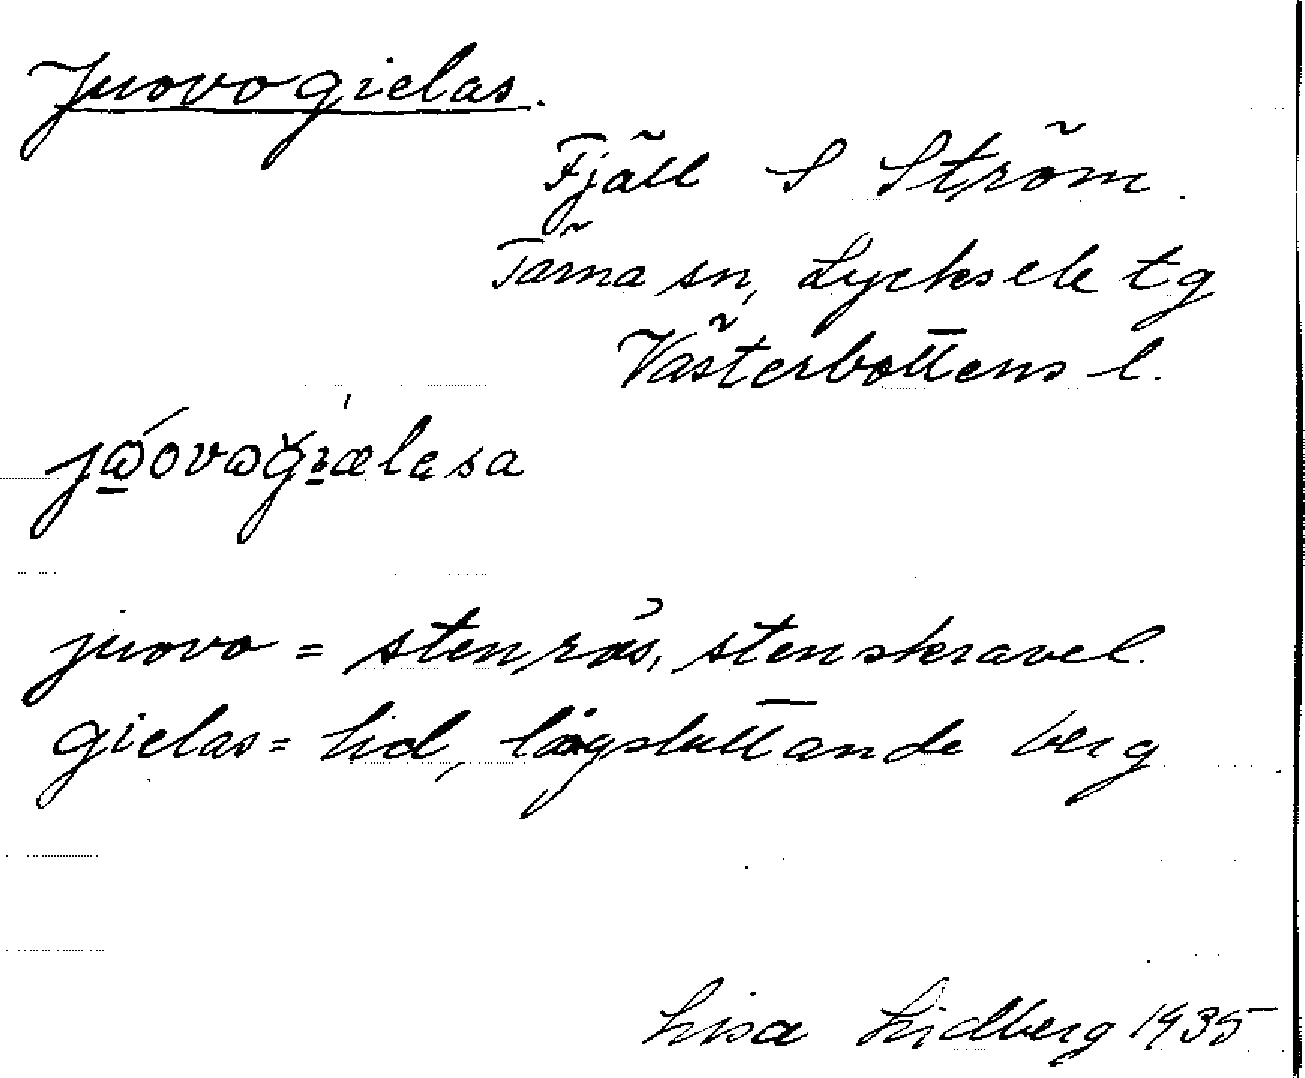 Juovogielas.
Fjäll S Ström.
Tärna sn, Lycksele tg
Västerbottens l.
juovo = stenrös, stenskravel.
gielas = lid, lågsluttande berg
Lisa Lidberg 1935